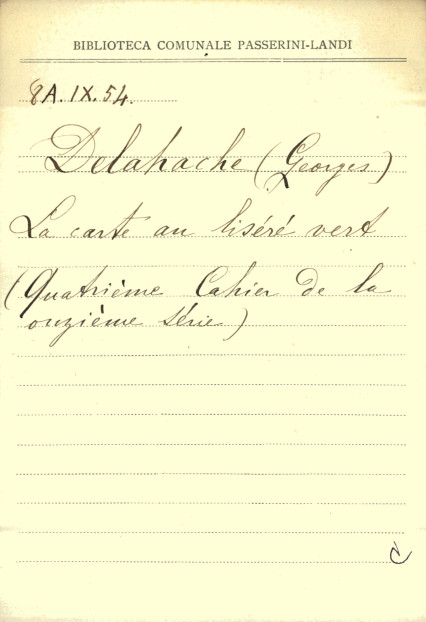 BIBLIOTECA COMUNALE PASSERINI-LANDI
8A.IX.54.
Delahache (Georges)
La carte au liséré vert
(Quatrième Cahier de la
onzième série)